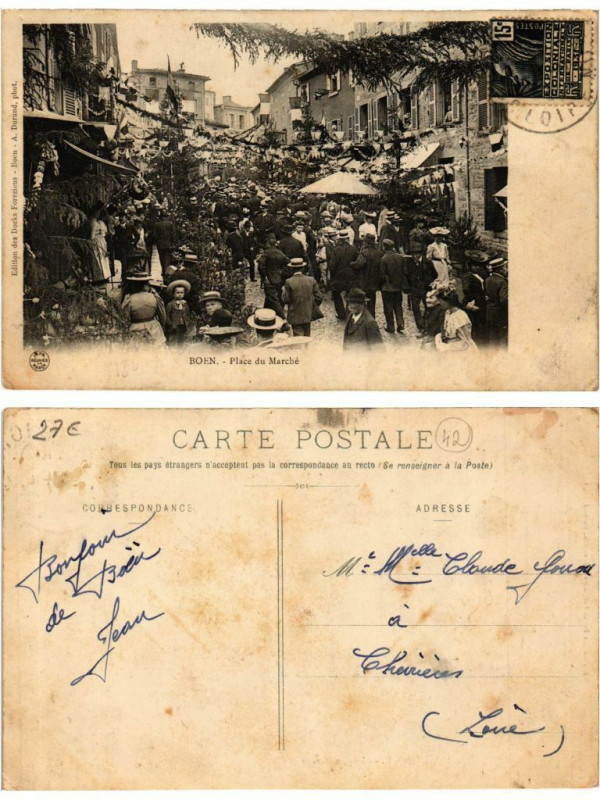 Edition des Docks Foreziens - Boen - A. Durand, phot.
15c
EXPOSITION
COLONIALE
LOIRE
BOEN. - Place du Marché
27€
CARTE POSTALE
42
Tous les pays étrangers n'acceptent pas la correspondance au recto (Se renseigner à la Poste)
CORRESPONDANCE
ADRESSE
Bonjour
de Boën
Jean
Mr = Melle = Claude
à
Chevrières
(Loire)